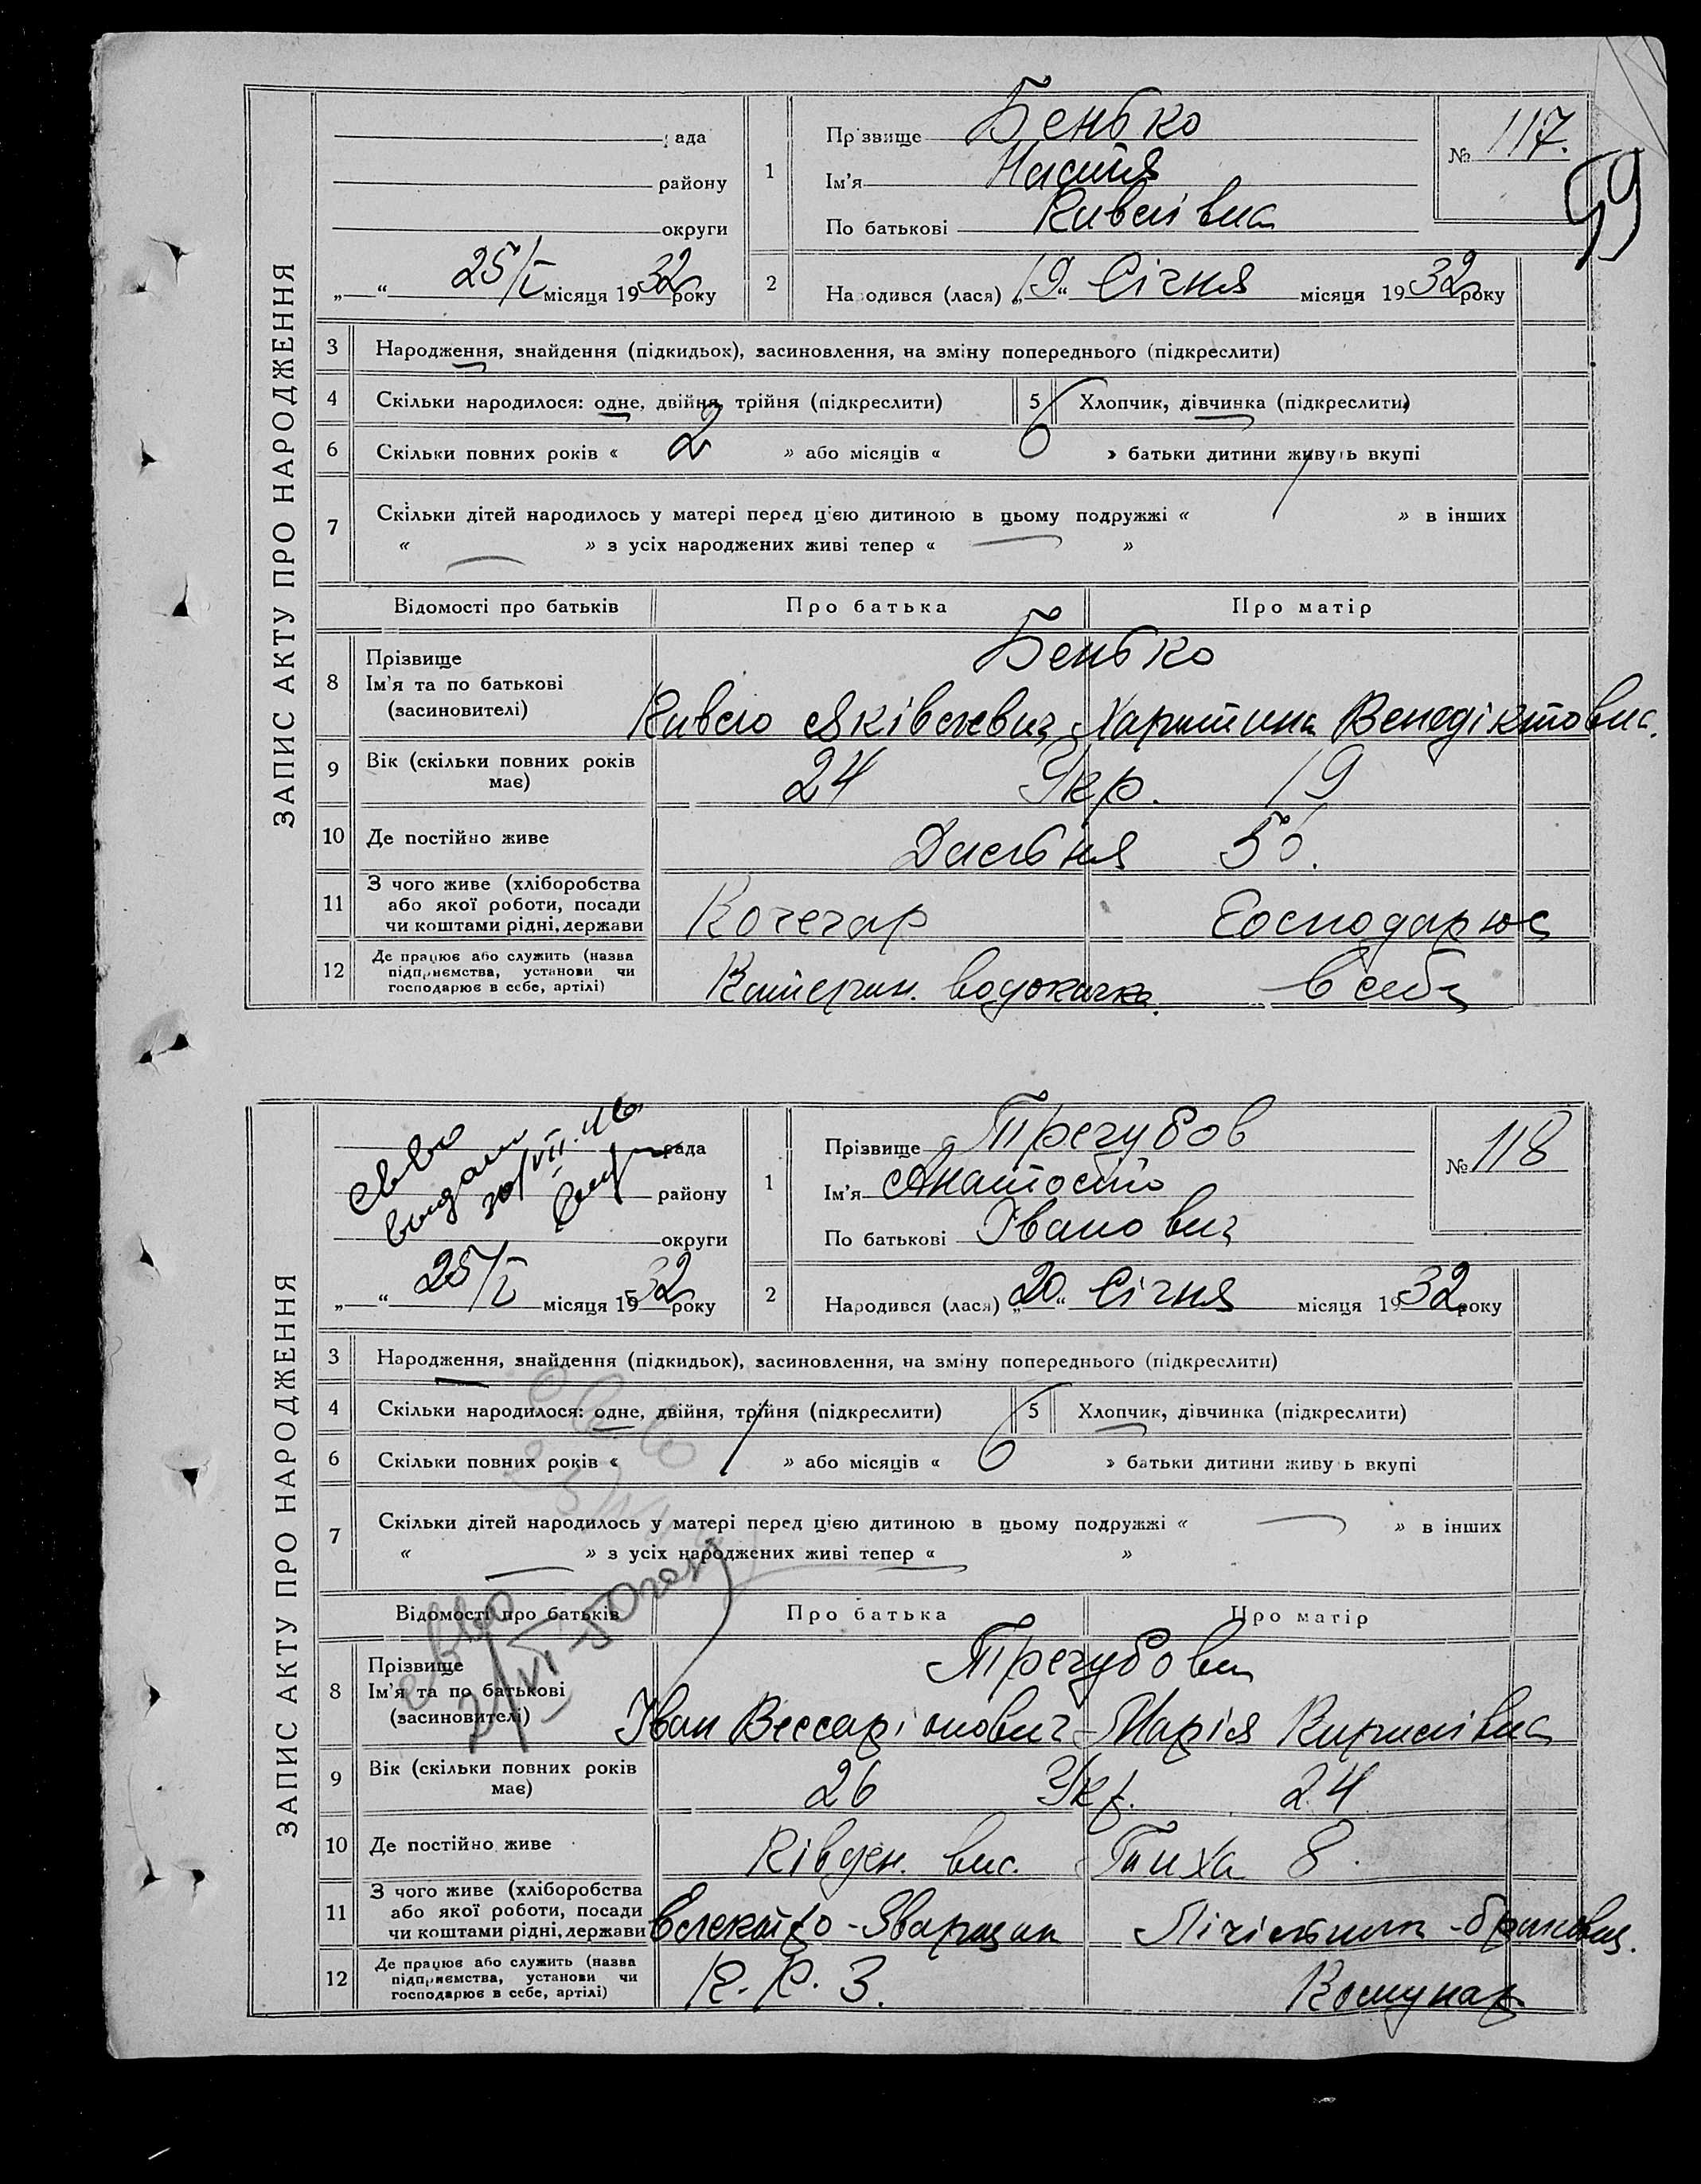 59
ЗАПИС АКТУ ПРО НАРОДЖЕННЯ
рада
району
округи
„—“ 25/I місяця 1932 року
1
Прізвище Бенько
Ім'я Настя
По батькові Павлівна
№ 117.
2
Народився (лася) „19“ Січня місяця 1932 року
3 Народження, знайдення (підкидьок), засиновлення, на зміну попереднього (підкреслити)
4 Скільки народилося: одне, двійня, трійня (підкреслити)
5 Хлопчик, дівчинка (підкреслити)
6 Скільки повних років « 2 » або місяців « » батьки дитини живуть вкупі
7 Скільки дітей народилось у матері перед цією дитиною в цьому подружжі « » в інших
« — » з усіх народжених живі тепер « — »
Відомості про батьків Про батька Про матір
8 Прізвище
Ім'я та по батькові
(засиновителі)
Бенько
Павло Яківлевич Харитина Венедіктовна.
9 Вік (скільки повних років має)
24 Укр. 19
10 Де постійно живе
50.
11 З чого живе (хліборобства
або якої роботи, посади
чи коштами рідні, держави
Кочегар Господарює
12 Де працює або служить (назва
підприємства, установи чи
господарює в себе, артілі)
Катерин. водокачка. в себе
ЗАПИС АКТУ ПРО НАРОДЖЕННЯ
рада
району
округи
св-во
видано
20/VII.46
„—“ 25/I місяця 1932 року
1
Прізвище Трегубов
Ім'я Анатолій
По батькові Іванович
№ 118
2
Народився (лася) „20“ Січня місяця 1932 року
3 Народження, знайдення (підкидьок), засиновлення, на зміну попереднього (підкреслити)
4 Скільки народилося: одне, двійня, трійня (підкреслити)
5 Хлопчик, дівчинка (підкреслити)
6 Скільки повних років « 1 » або місяців « » батьки дитини живуть вкупі
7 Скільки дітей народилось у матері перед цією дитиною в цьому подружжі « — » в інших
« — » з усіх народжених живі тепер « — »
2/VI-50 года
Відомості про батьків Про батька Про матір
8 Прізвище
Ім'я та по батькові
(засиновителі)
Трегубови
Іван Вессаріонович - Марія Кирилівна
9 Вік (скільки повних років має)
26 Укр. 24
10 Де постійно живе
Півден. вис. Тиха 8.
11 З чого живе (хліборобства
або якої роботи, посади
чи коштами рідні, держави
Електро-Зварщик
12 Де працює або служить (назва
підприємства, установи чи
господарює в себе, артілі)
П. Р. З. Комунар